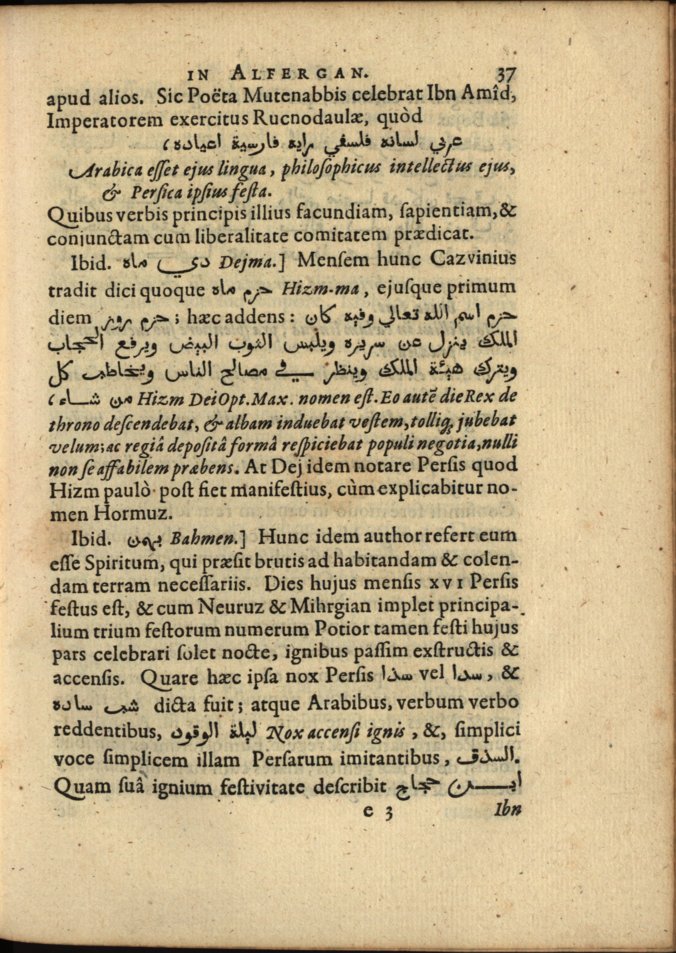 IN ALFERGAN. 37
apud alios. Sic Poëta Mutenabbis celebrat Ibn Amîd,
Imperatorem exercitus Rucnodaulæ, quòd
عربي لسانه فلسفي رايه فارسية اعياده (
Arabica esset ejus lingua, philosophicus intellectus ejus,
& Persica ipsius festa.
Quibus verbis principis illius facundiam, sapientiam, &
conjunctam cum liberalitate comitatem prædicat.
Ibid. دي ماه Dejma.] Mensem hunc Cazvinius
tradit dici quoque خرم ماه Hizm-ma, ejusque primum
diem خرم روز; hæc addens: خرم اسم الله تعالي وفيه كان
الملك ينزل عن سريره ويلبس الثوب البيض ويرفع الحجاب
ويترك هيئة الملك وينظر في مصالح الناس ويخاطب كل
من شاء ( Hizm Dei Opt. Max. nomen est. Eo autē die Rex de
throno descendebat, & albam induebat vestem, tolliq; jubebat
velum; ac regiâ depositâ formâ respiciebat populi negotia, nulli
non se affabilem præbens. At Dej idem notare Persis quod
Hizm paulò post fiet manifestius, cùm explicabitur no-
men Hormuz.
Ibid. بهمن Bahmen.] Hunc idem author refert eum
esse Spiritum, qui præsit brutis ad habitandam & colen-
dam terram necessariis. Dies hujus mensis XVI Persis
festus est, & cum Neuruz & Mihrgian implet principa-
lium trium festorum numerum Potior tamen festi hujus
pars celebrari solet nocte, ignibus passim exstructis &
accensis. Quare hæc ipsa nox Persis سدا vel سدا, &
شب ساده dicta fuit; atque Arabibus, verbum verbo
reddentibus, ليلة الوقود Nox accensi ignis, &, simplici
voce simplicem illam Persarum imitantibus, السذق.
Quam suâ ignium festivitate describit ابن حجاج (
e 3 Ibn